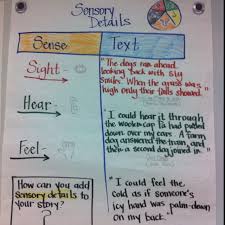 Sensory
Details
Sense
Text
Sight
"The dogs ran ahead,
looking back with sly
smiles. When the grass was
high only their tails showed."
Hear
"I could hear it through
the woolen cap Pa had pulled
down over my ears. A farm
dog answered the train, and
then a second dog joined in."
Feel
How can you add
sensory details to
your story?
"I could feel the
cold as if someone's
icy hand was palm-down
on my back."